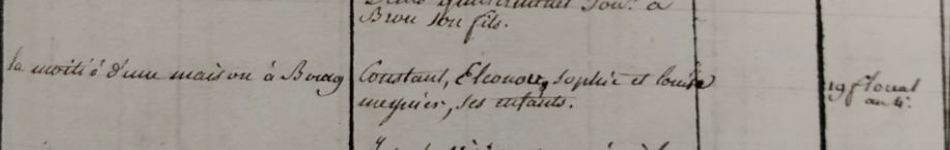 Brou son fils.
la moitié d'une maison à Bourg
Constant, Eleonore, Sophie et louise
meynier, ses enfants.
19 floreal
an 4.